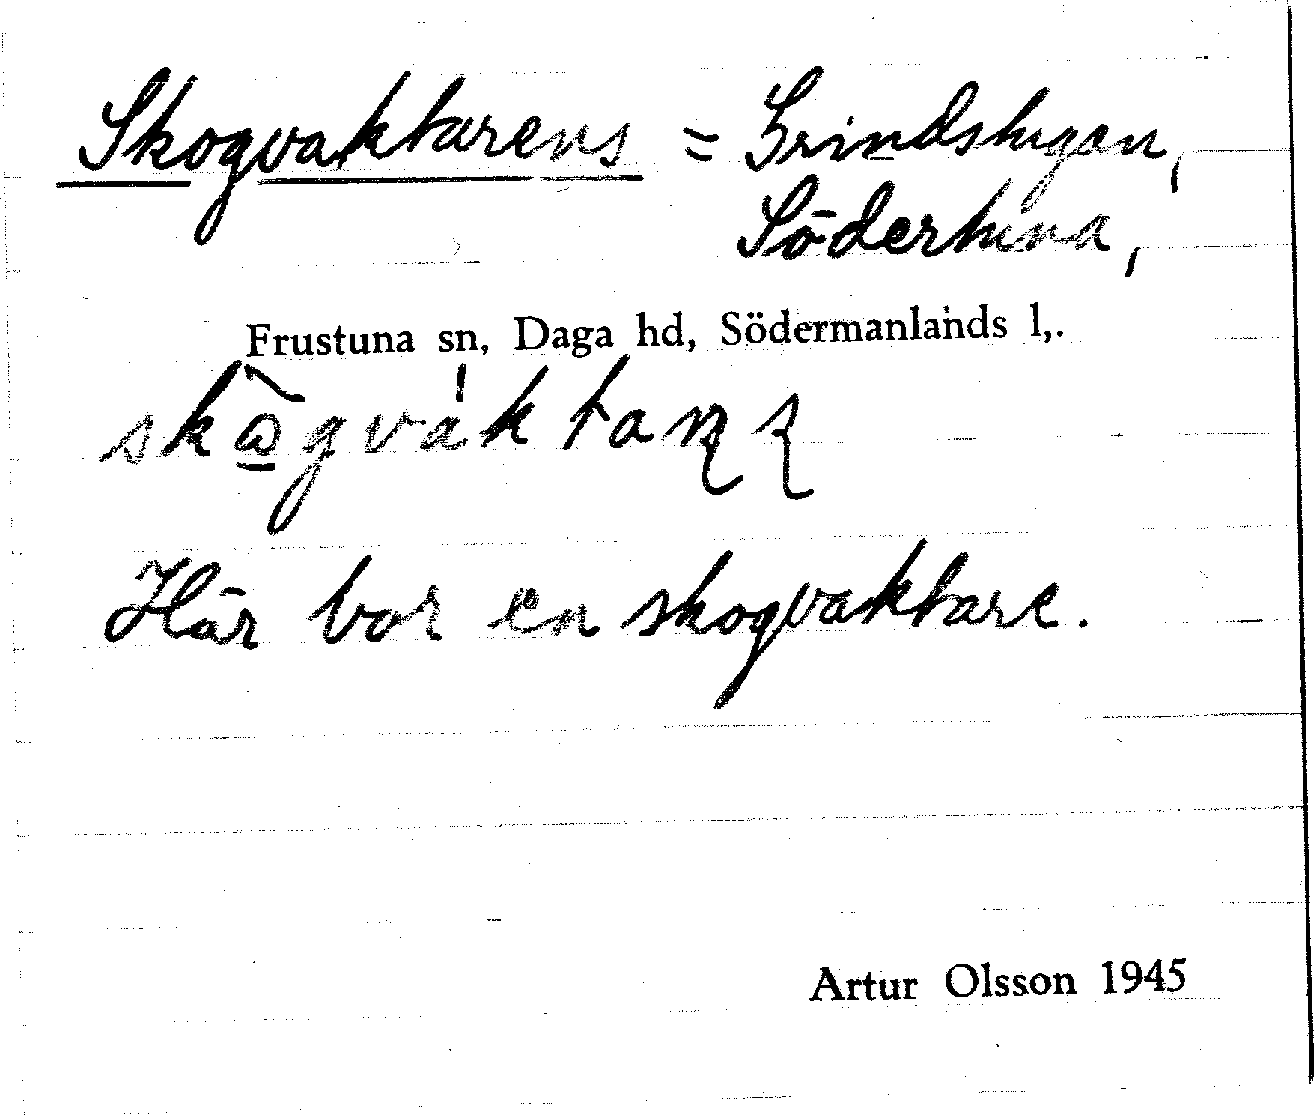 Skogvaktarens = Grindstugan,
Södertuna,
Frustuna sn, Daga hd, Södermanlands l,.
Här bor en skogvaktare.
Artur Olsson 1945